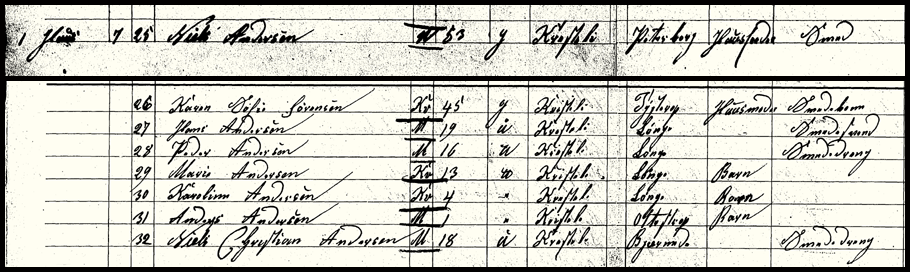 1 Huus 7 25 Niels Andersen M 53 g Kristeli Pedersborg Huusfader Smed
26 Karen Sofie Sørensen Kv 45 g Kristeli Huusmoder Smedekone
27 Hans Andersen M 19 u Kristeli Lynge Smedesvend
28 Peder Andersen M 16 u Kristeli Lynge Smededreng
29 Marie Andersen Kv 13 Kristeli Lynge Barn
30 Karoline Andersen Kv 4 " Kristeli Lynge Barn
31 Anders Andersen M 1 " Kristeli Barn
32 Niels Christian Andersen M 18 u Kristeli Bjernede Smededreng